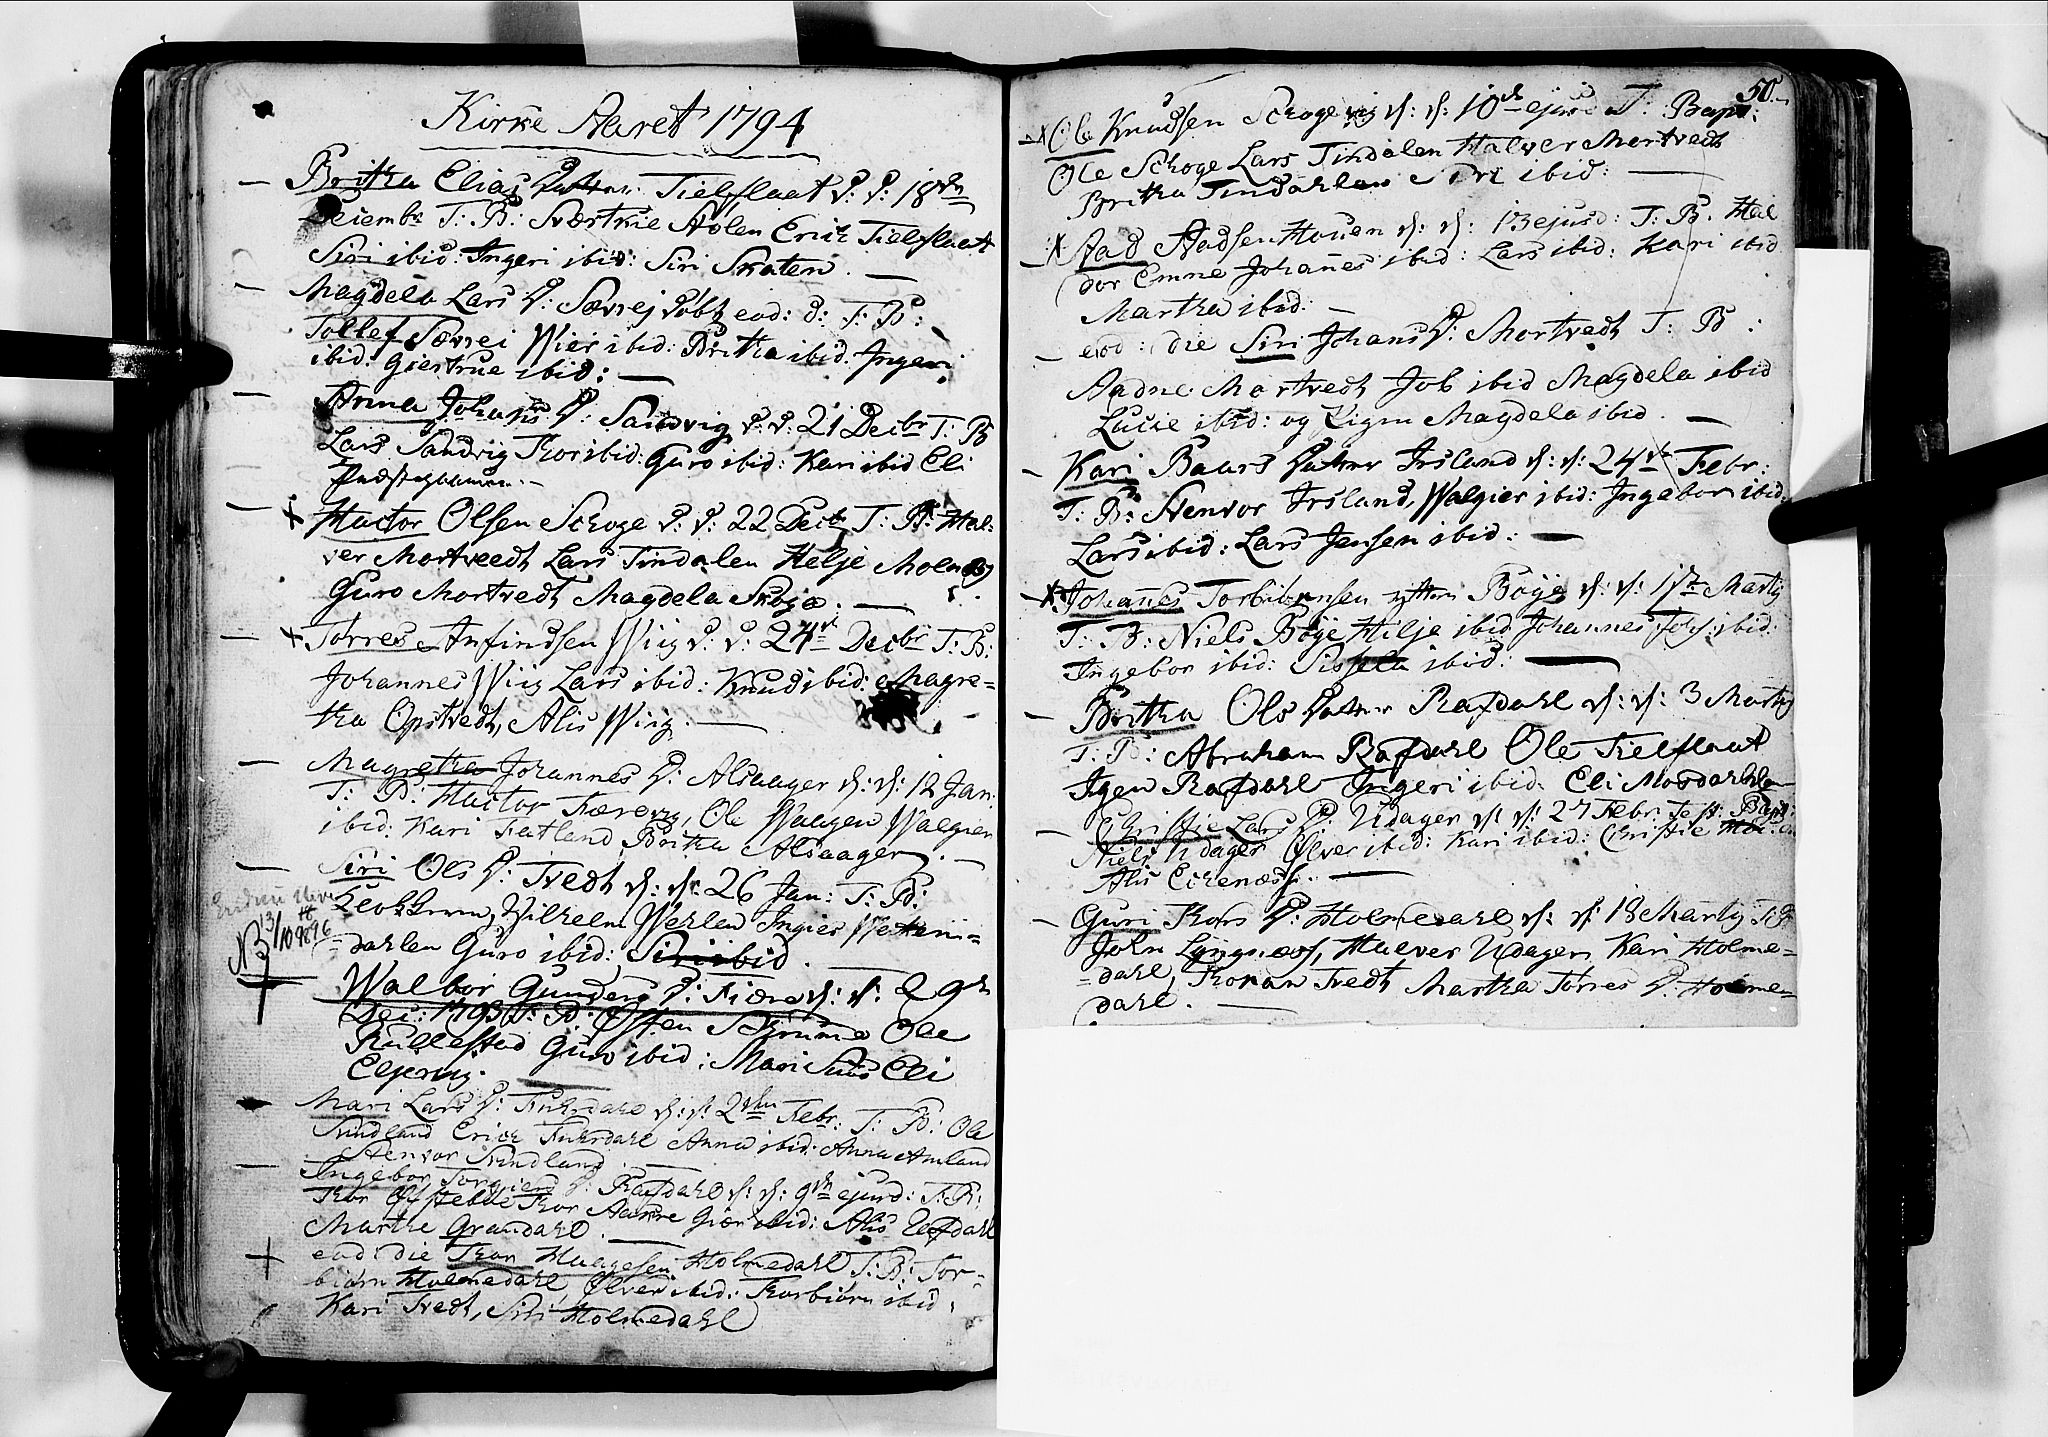 Kirke Aaret 1794
Britha Elias Datter Tielflaat D: D: 18de
Decembr T: B: Sværkie Stølen Erich Tielflaat
Siri ibid: Ingeri ibid: Siri Skaten. —
Magdela Lars D: Sævrej døbt eod: d: T: B:
Tollef Sævrei Wier ibid: Britha ibid. Ingeri
ibid: Giertrue ibid: —
Anna Johans D: Sandvig D: D: 21 Decbr T: B
Lars Sandvig Thor ibid: Guro ibid: Kari ibid Eli
Hactor Olsen Schoge D: D: 22 Decbr T: B: Hal:
ver Mortvedt Lars Tindalen Helje
Guro Mortvedt Magdela Skoge. —
Torres Anfindsen Wiig D: D: 24de Decbr T: B:
Johannes Wiig Lars ibid: Knud ibid: Magre=
tha Opstvedt, Alis Wiig. —
Magretha Johannes D: Alsaager d: d: 12 Jan:
T: B: Hactor Færevig, Ole Waagen Walgier
ibid: Kari Fatland Britha Alsaager. —
Siri Ols D: Tvedt d: d: 26 Jan: T: B:
Wilhelm Werlen Ingier
=dahlen Guro ibid: Siri ibid.
NB 13/10 1896
Walbor Gunders D: Fiære d: d: 29de
Dec: 1793 T: B: Østen Schrume Ole
Rullestad Guro ibid: Mari Eli
Mari Lars D: Fiskerdahl d: d: 2den Febr: T: B: Ole
Sundland Erich Fiskerdahl Anna ibid: Anna Amland
Stenvor Sundland. —
Ingebor Torgiers D: Rafdahl d: d: 9de ejusd: T: B:
Thor Thor Aakre Giør ibid: Alis Rafdahl
Martha Grandahl. —
eod: die Thor Haagesen Holmedahl T: B: Tor=
biørn Holmedahl, Ølver ibid: Thorbiørn ibid:
Kari Tvedt, Siri Holmedahl
50.
Ole Knudsen Schogevig d: d: 10de ejusd T: Bapt:
Ole Schoge Lars Tindalen Halver Mortvedt
Britha Tindahlen Siri ibid: —
Aad Aadsen Houen d: d: 13 ejusd: T: B: Hal
dor Emne Johanes ibid: Lars ibid: Kari ibid
Martha ibid: —
eod: die Siri Johans D: Mortvedt T: B:
Aadne Mortvedt Job ibid Magdela ibid
Lucie ibid: og Magdela ibid. —
Kari Baars Datter Irsland d: d: 24de Febr:
T: B: Stenvor Irsland, Walgier ibid: Ingebor ibid.
Lars ibid: Lars Jensen ibid: —
Johannes Torbiørnsen Bøge d: d: Martij
T: B: Niels Bøge Hilje ibid Johannes Joh: ibid:
Ingebor ibid: Sissela ibid: —
Britha Ols Datter Rafdahl d: d: 3 Martij
T: B: Abraham Rafdahl Ole Tielflaat
Rafdahl Ingeri ibid: Eli Mosdahlen
Christie Lars D: Udager d: d: 27 Febr: Test: Bapt:
Niels Udager Ølver ibid: Kari ibid: Cristie
Alis Eckenæss: —
Guri Thors D: Holmedahl d: d: 18 Martij T: B:
John Lyngnæs, Halver Udager, Kari Holme=
=dahl, Thoran Tvedt Martha Torres D: Holme=
dahl. —